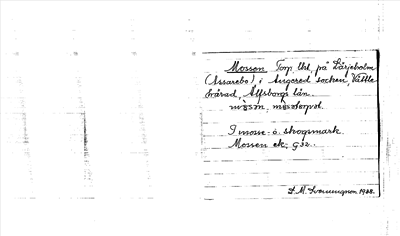 Mossen Torp lht. på Lärjeholm
(Assarebo) i Angered socken, Vättle
härad, Älfsborgs län.
I mosse o. skogsmark.
Mossen ek. 932.
1928.